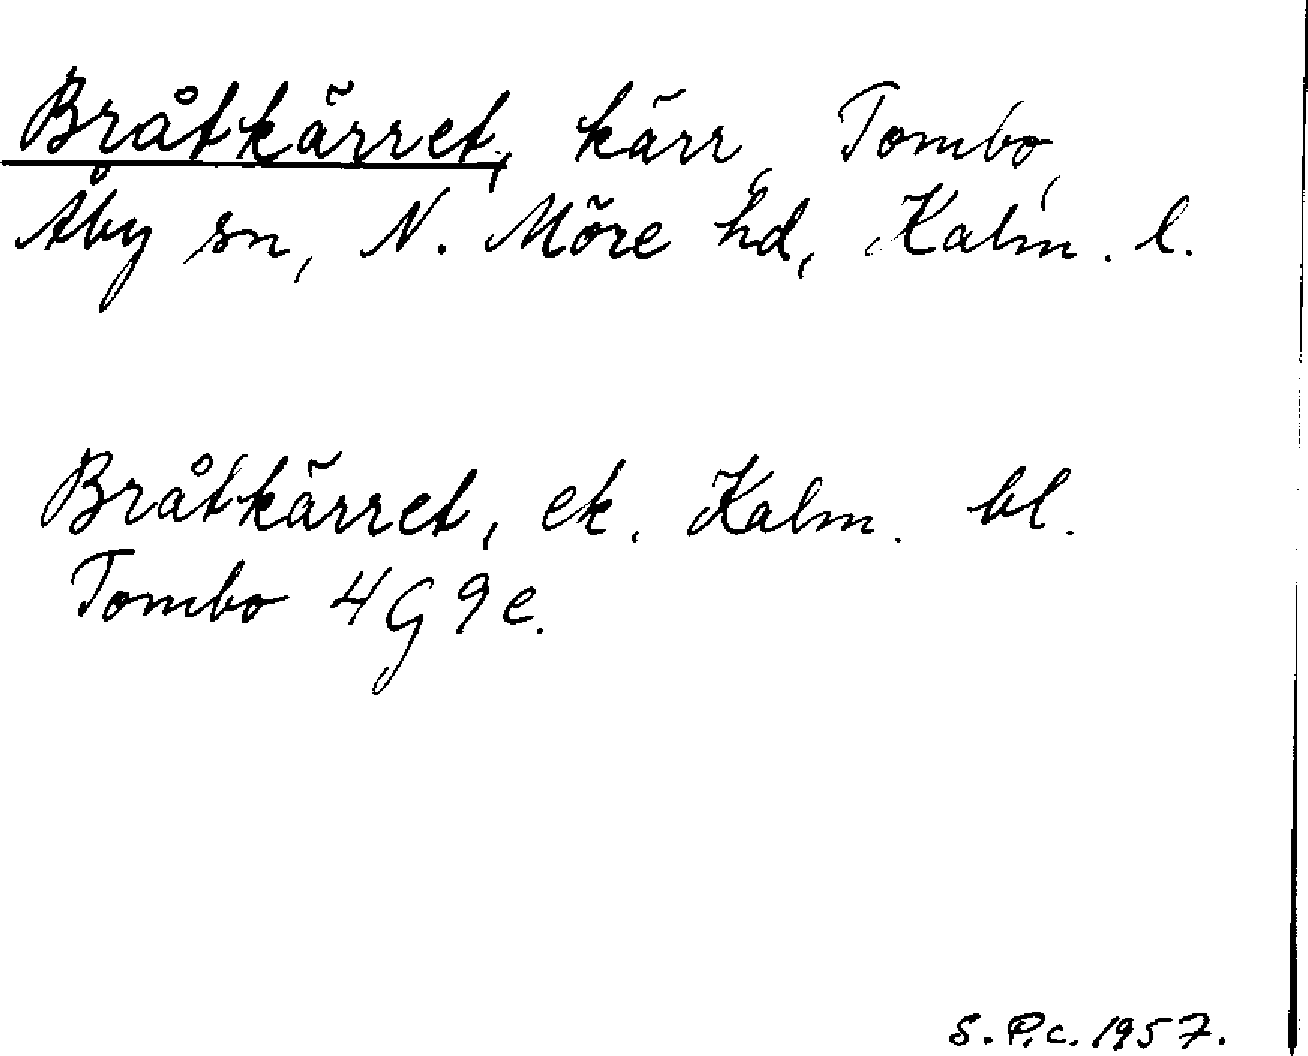 Bråtkärret, kärr, Tombo,
Åby sn, N. Möre hd, Kalm. l.
Bråtkärret, ek. Kalm. bl.
Tombo 4G9e.
S.P.c. 1957.